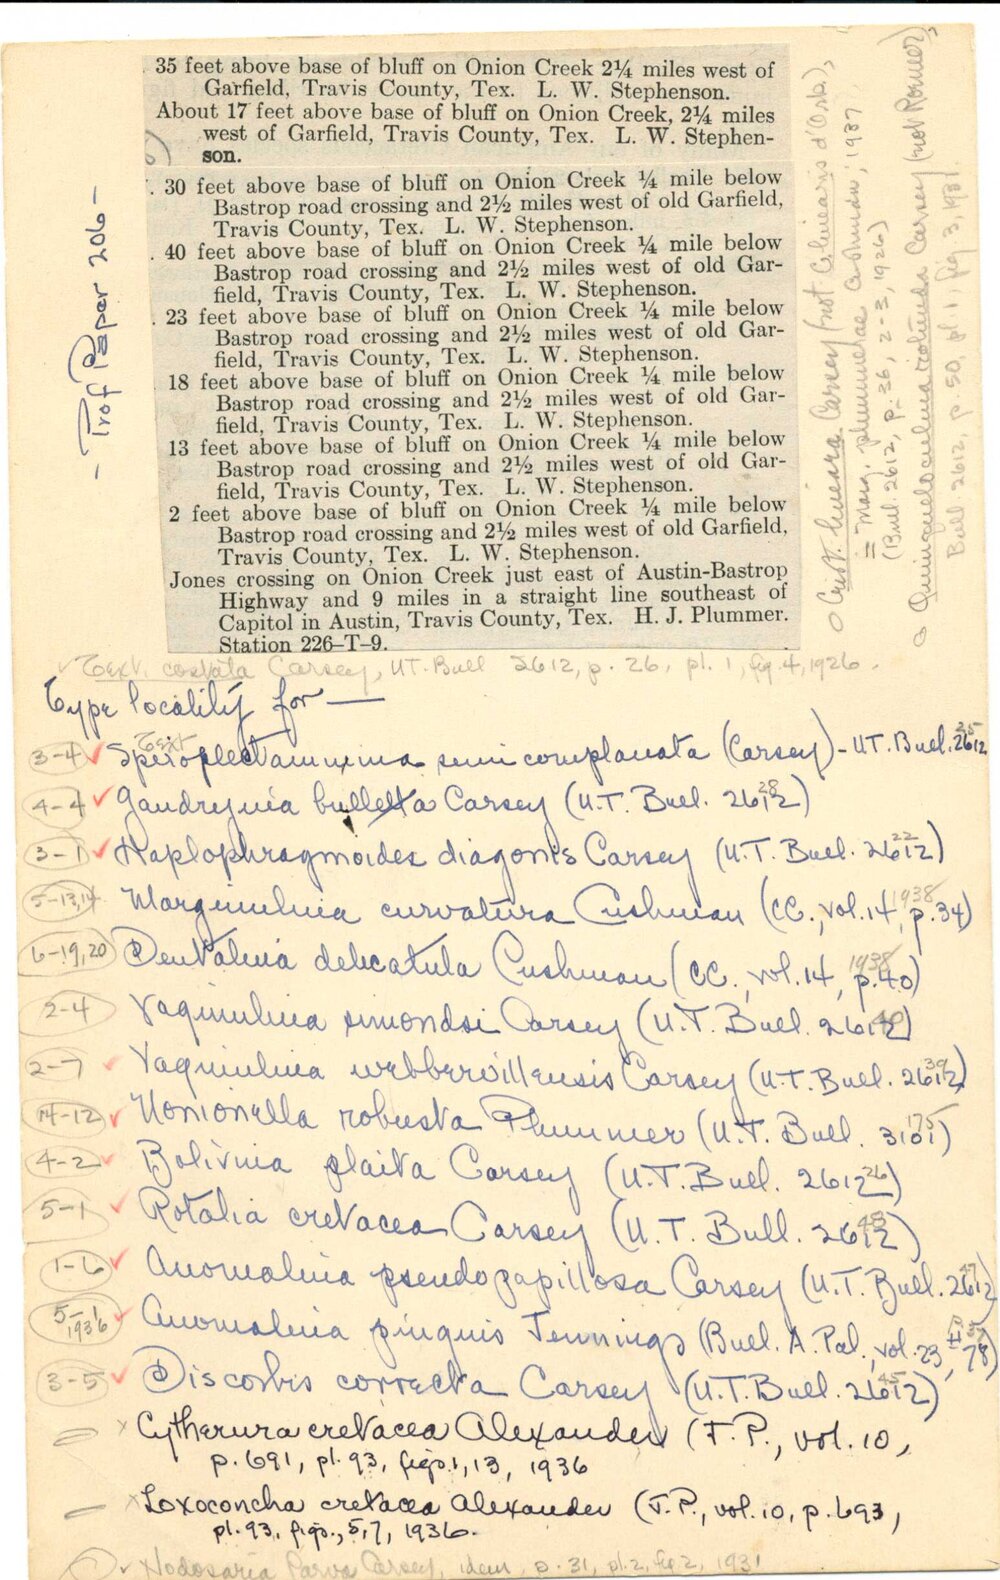 35 feet above base of bluff on Onion Creek 2¼ miles west of
Garfield, Travis County, Tex. L. W. Stephenson.
About 17 feet above base of bluff on Onion Creek, 2¼ miles
west of Garfield, Travis County, Tex. L. W. Stephen-
son.
30 feet above base of bluff on Onion Creek ¼ mile below
Bastrop road crossing and 2½ miles west of old Garfield,
Travis County, Tex. L. W. Stephenson.
40 feet above base of bluff on Onion Creek ¼ mile below
Bastrop road crossing and 2½ miles west of old Gar-
field, Travis County, Tex. L. W. Stephenson.
23 feet above base of bluff on Onion Creek ¼ mile below
Bastrop road crossing and 2½ miles west of old Gar-
field, Travis County, Tex. L. W. Stephenson.
18 feet above base of bluff on Onion Creek ¼ mile below
Bastrop road crossing and 2½ miles west of old Gar-
field, Travis County, Tex. L. W. Stephenson.
13 feet above base of bluff on Onion Creek ¼ mile below
Bastrop road crossing and 2½ miles west of old Gar-
field, Travis County, Tex. L. W. Stephenson.
2 feet above base of bluff on Onion Creek ¼ mile below
Bastrop road crossing and 2½ miles west of old Garfield,
Travis County, Tex. L. W. Stephenson.
Jones crossing on Onion Creek just east of Austin-Bastrop
Highway and 9 miles in a straight line southeast of
Capitol in Austin, Travis County, Tex. H. J. Plummer.
Station 226–T–9.
- Prof Paper 206 -
Crist. linearis Carsey (not C. linearis d'Orb.),
= Marg. plummerae Cushman, 1937
(Bull. 2612, p. 36, 2-3, 1926)
Quinqueloculina rotunda Carsey (not Romer),
Bull 2612, p. 50, pl 1, fig 3, 1931
Text. costata Carsey, UT. Bull 2612, p. 26, pl. 1, fig. 4, 1926.
Type locality for —
3-4 Text Spiroplectammina semicomplanata (Carsey) - U.T. Bull. 2612 25
4-4 Gaudryina bulletta Carsey (U.T. Bull. 2612) 28
3-1 Haplophragmoides diagonis Carsey (U.T. Bull. 2612) 22
5-13,14 Marginulina curvatura Cushman (CC., vol. 14, 1938 p. 34)
6-19,20 Dentalina delicatula Cushman (CC., vol. 14, 1938 p. 40)
2-4 Vaginulina simondsi Carsey (U.T. Bull. 2612) 40
2-7 Vaginulina webbervillensis Carsey (U.T. Bull. 2612) 39
14-12 Nonionella robusta Plummer (U.T. Bull. 3101) 175
4-2 Bolivina plaita Carsey (U.T. Bull. 2612) 26
5-1 Rotalia cretacea Carsey (U.T. Bull. 2612) 48
1-6 Anomalina pseudopapillosa Carsey (U.T. Bull. 2612) 47
5-1 1936 Anomalina pinguis Jennings (Bull. A. Pal., vol. 23, 78)
3-5 Discorbis correcta Carsey (U.T. Bull. 2612) 45
Cytherura cretacea Alexander (J.P., vol. 10,
p. 691, pl. 93, figs. 1, 13, 1936
Loxoconcha cretacea Alexander (J.P., vol. 10, p. 693,
pl. 93, figs., 5, 7, 1936.
Nodosaria parva Carsey, idem, p. 31, pl. 2, fig. 2, 1931